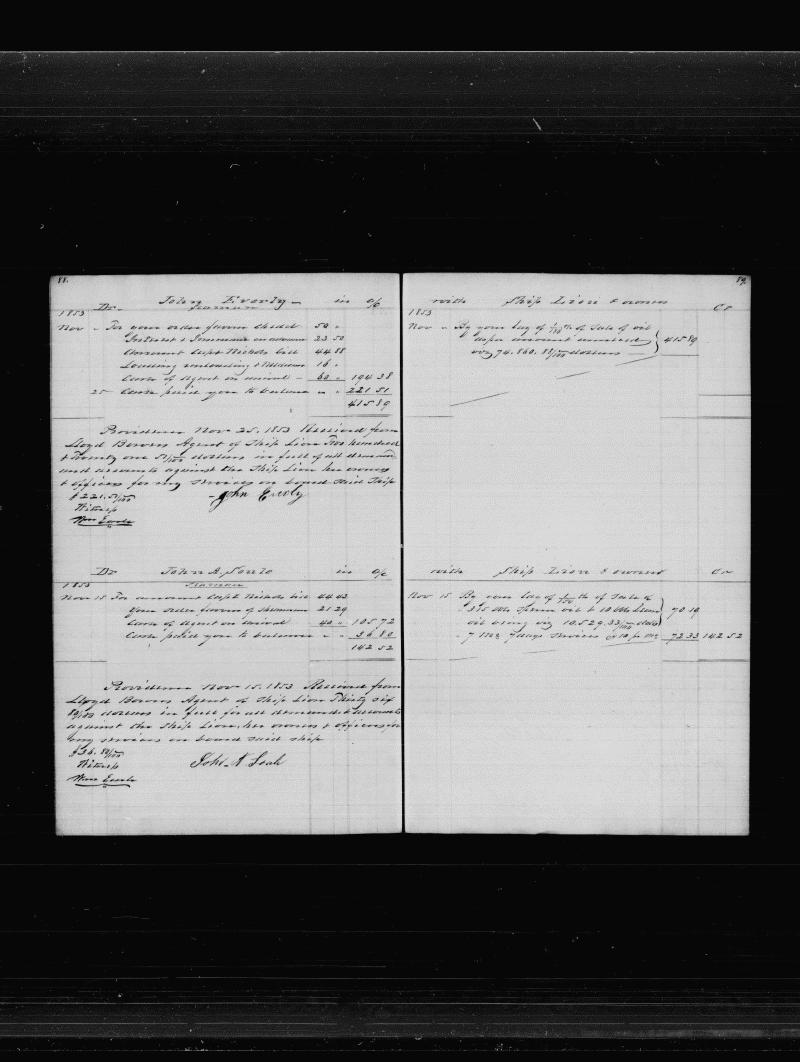 88.
Dr John Everly in a/c
Seaman
1853
Nov " To your order favor 50 "
Interest & Insurance on advance 23 50
Amount Capt Nichols bill 44 88
Loading unloading & 16 "
Cash of Agent on arrival 60 " 194 38
25 Cash paid you to balance " " 221 51
415 89
Providence Nov 25. 1853 Received from
Lloyd Bowers Agent of Ship Lion Two hundred
& Twenty one 51/100 dollars in full of all demands
and accounts against the Ship Lion her owners
& officers for my services on board said Ship
$221.51/100 John Everly
Witness
Wm Earle
Dr John A. in a/c
1853 Seaman
Nov 15 To amount Capt Nichols bill 44 43
Your order favor of 21 29
Cash of Agent on arrival 40 " 105 72
Cash paid you to balance " " 36 80
142 52
Providence Nov 15. 1853 Received from
Lloyd Bowers Agent of Ship Lion Thirty six
80/100 dollars in full for all demands & accounts
against the Ship Lion, her owners & officers for
my services on board said ship
$36.80/100
Witness John A
Wm Earle
89.
with Ship Lion & owners Cr
1853
Nov " By your lay of 1/180th of Sale of oil
as per account
viz 74.860.88/100 dollars 415 89
with Ship Lion & owners Cr
Nov 15 By your lay of 1/150th of Sale of
315 Bbls Sperm oil & 10 Bbls
oil being viz 10.529.33/100 dolls 70 19
" 7 Mos 7 days services @ 10 per mo 72 33 142 52